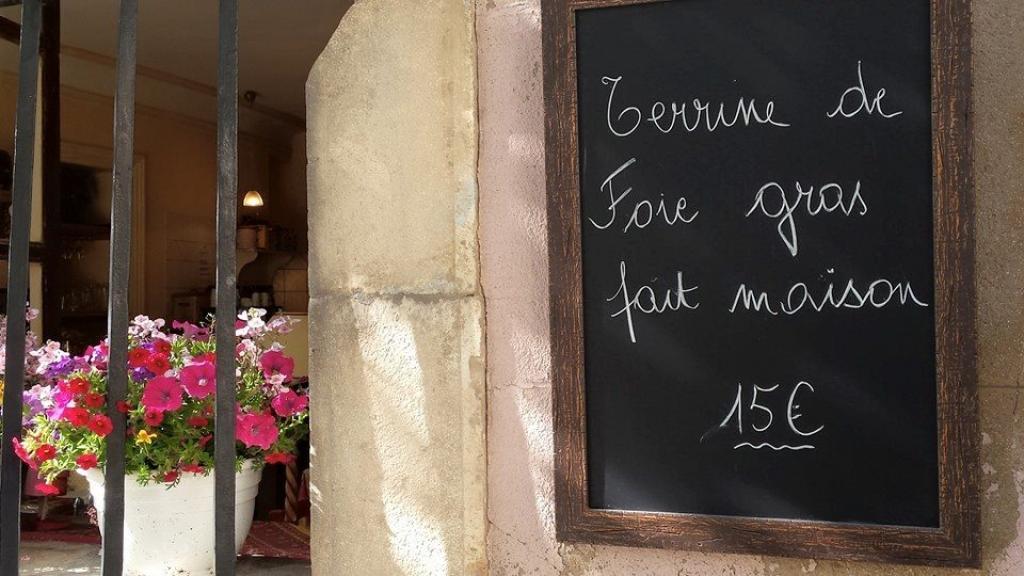 Terrine de
Foie gras
fait maïson
15€